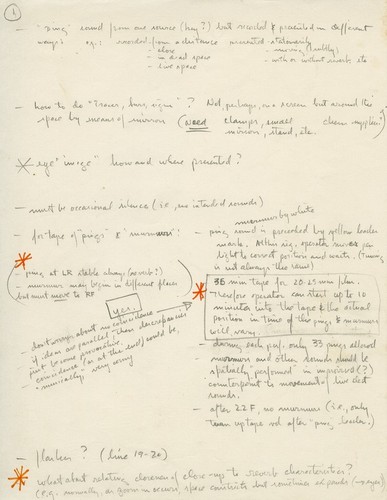 1
- "ping" sound from one source (key?) but recorded & presented in different
ways: e.g.: recorded from a distance presented stationarily
- close - moving (subtly)
- in dead space - with or without reverb. etc
- live space
- how to do "Traces, bars, signs"? Not, perhaps, on a screen but around the
space by means of mirrors (need clamps, small chem supplier?
mirrors, stand, etc.
* eye "image" how and where presented?
- must be occasional silence (i.e., no intended sounds)
murmurs by white
- for tape of "pings" & "murmurs":
- ping sound is preceded by yellow leader
mark. At this sig, operator moves
light to correct position and waits. (Timing
is not always the same)
* - ping at LR stable always (no verb?)
- murmur may begin in different places
but must move to RF
yes.
- don't worry about no coincidence
- if ideas are parallel, then discrepancies
just become provocative.
coincidence (or at the end) could be,
musically, very
* 35 min tape for 20-25 min plan.
Therefore operator can start up to 10
minutes into the tape & the actual
position in time of the pings & murmurs
will vary.
- during each perf. only 33 pings allowed
- murmurs and other sounds should be
spatially "performed" in improvised (?)
counterpoint to movement of live
sounds.
- after 22 F, no murmurs (i.e., only
turn up tape vol after "ping" leader.)
- ? (line 19-20)
* what about relating closeness of close-ups to reverb characteristics?
(e.g. normally, as grow in occurs, space constricts but sometimes expands